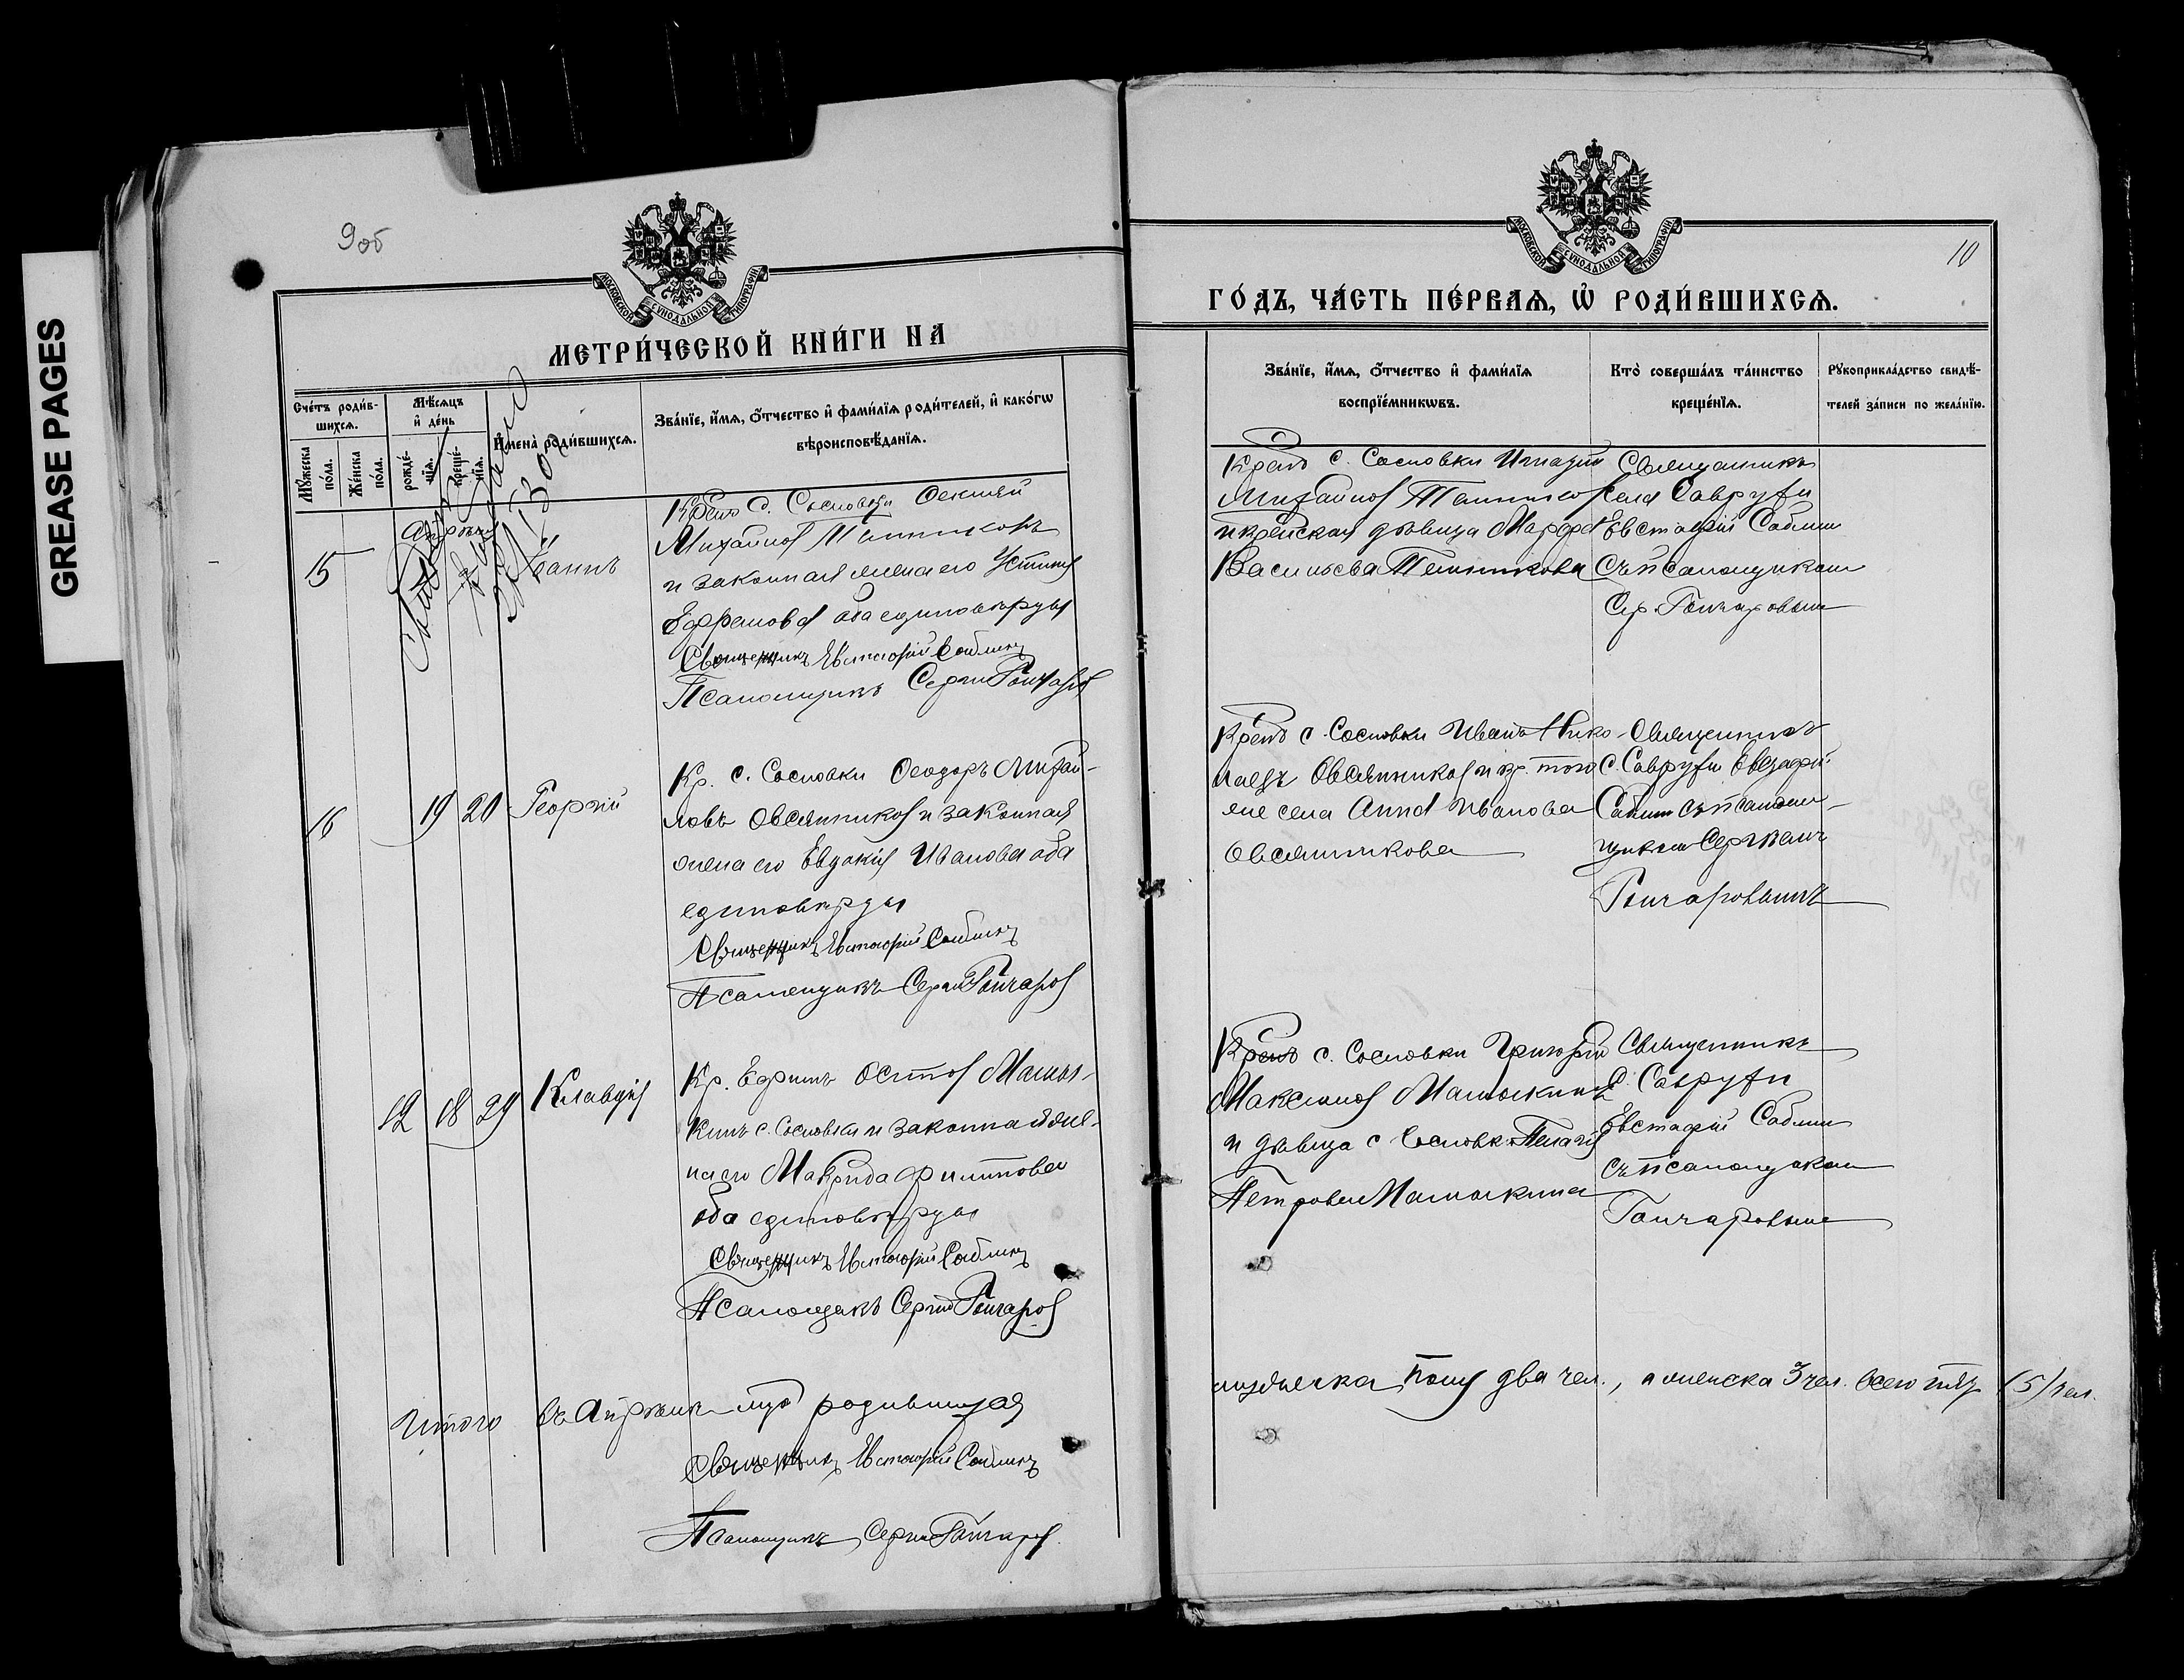 GREASE PAGES
9об
МОСКОВСКОЙ СѴНОДАЛЬНОЙ ТИПОГРАФІИ
МЕТРИ́ЧЕСКОЙ КНИ́ГИ НА
Сче́тъ роди́вшихсѧ.
Мꙋ́жеска по́ла.
Же́нска по́ла.
Мѣ́сѧцъ и҆ де́нь
рожде́нїѧ.
креще́нїѧ.
И҆мена̀ роди́вшихсѧ.
Зва́нїе, и҆́мѧ, ѻ҆́тчество и҆ фами́лїѧ роди́телей, и҆ како́гѡ
вѣроисповѣ́данїѧ.
15
Іоаннъ
Крснъ с. Сосновки
Михайлов
и законная жена его Устинія
Ефремова оба единоверцы
Священникъ Евстафій Саблинъ
Псаломщикъ Сергій Гончаров
16
19 20
Георгій
Кр. с. Сосновки Ѳеодоръ Михай-
ловъ Овсянников и законная
жена его Евдокія Иванова оба
единоверцы
Священникъ Евстафій Саблинъ
Псаломщикъ Сергій Гончаров
12
18 29
Клавдія
Кр. Ефимъ
кинъ с. Сосновки и законная же-
на его Макрида Филиппова
оба единоверцы
Священникъ Евстафій Саблинъ
Псаломщикъ Сергій Гончаров
Итого въ Апреле м-це родившихся
Священникъ Евстафій Саблинъ
Псаломщикъ Сергій Гончаров
10
МОСКОВСКОЙ СѴНОДАЛЬНОЙ ТИПОГРАФІИ
ГО́ДЪ, ЧА́СТЬ ПЕ́РВАѦ, Ѡ҆ РОДИ́ВШИХСѦ.
Зва́нїе, и҆́мѧ, ѻ҆́тчество и҆ фами́лїѧ
воспрїе́мникѡвъ.
Кто̀ соверша́лъ та́инство
креще́нїѧ.
Рꙋкоприкла́дство свидѣ́-
телей за́писи по жела́нїю.
Крснъ с. Сосновки Игнатій
Михайлов
и крестьская девица Марфа
Васильева
Священникъ
села Саврухи
Евстафій Саблин
съ псаломщиком
Сер. Гончаровым
Крснъ с. Сосновки Иванъ Нико-
лаевъ Овсянников и кр. того
же села Анна Иванова
Овсянникова
Священникъ
с. Саврухи Евстафій
Саблин съ псалом-
щиком Сергѣемъ
Гончаровымъ
Крснъ с. Сосновки Григорій
Максимов
и девица с. Сосновк. Пелагія
Петрова
Священникъ
с. Саврухи
Евстафій Саблин
съ псаломщиком
Гончаровым
мужеска полу два чел., а женска 3 чел. всего пять (5) чел.